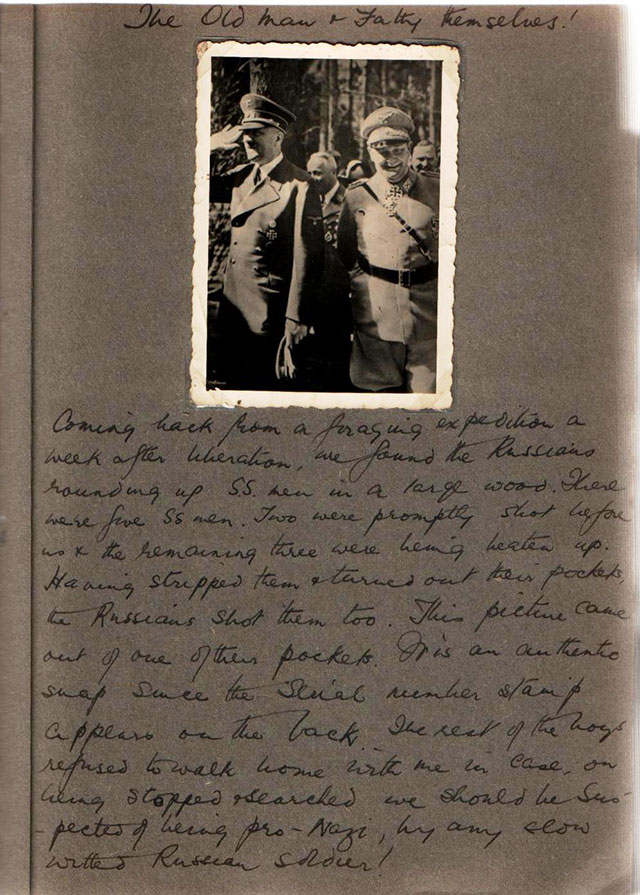 The Old Man & Fatty themselves!
Coming back from a foraging expedition a
week after liberation, we found the Russians
rounding up SS. men in a large wood. There
were five SS men. Two were promptly shot before
us & the remaining three were being beaten up.
Having stripped them & turned out their pockets,
the Russians shot them too. This picture came
out of one of their pockets. It is an authentic
snap since the serial number stamp
appears on the back. The rest of the boys
refused to walk home with me in case, on
being stopped & searched we should be sus-
-pected of being pro-Nazi, by any slow
witted Russian soldier!